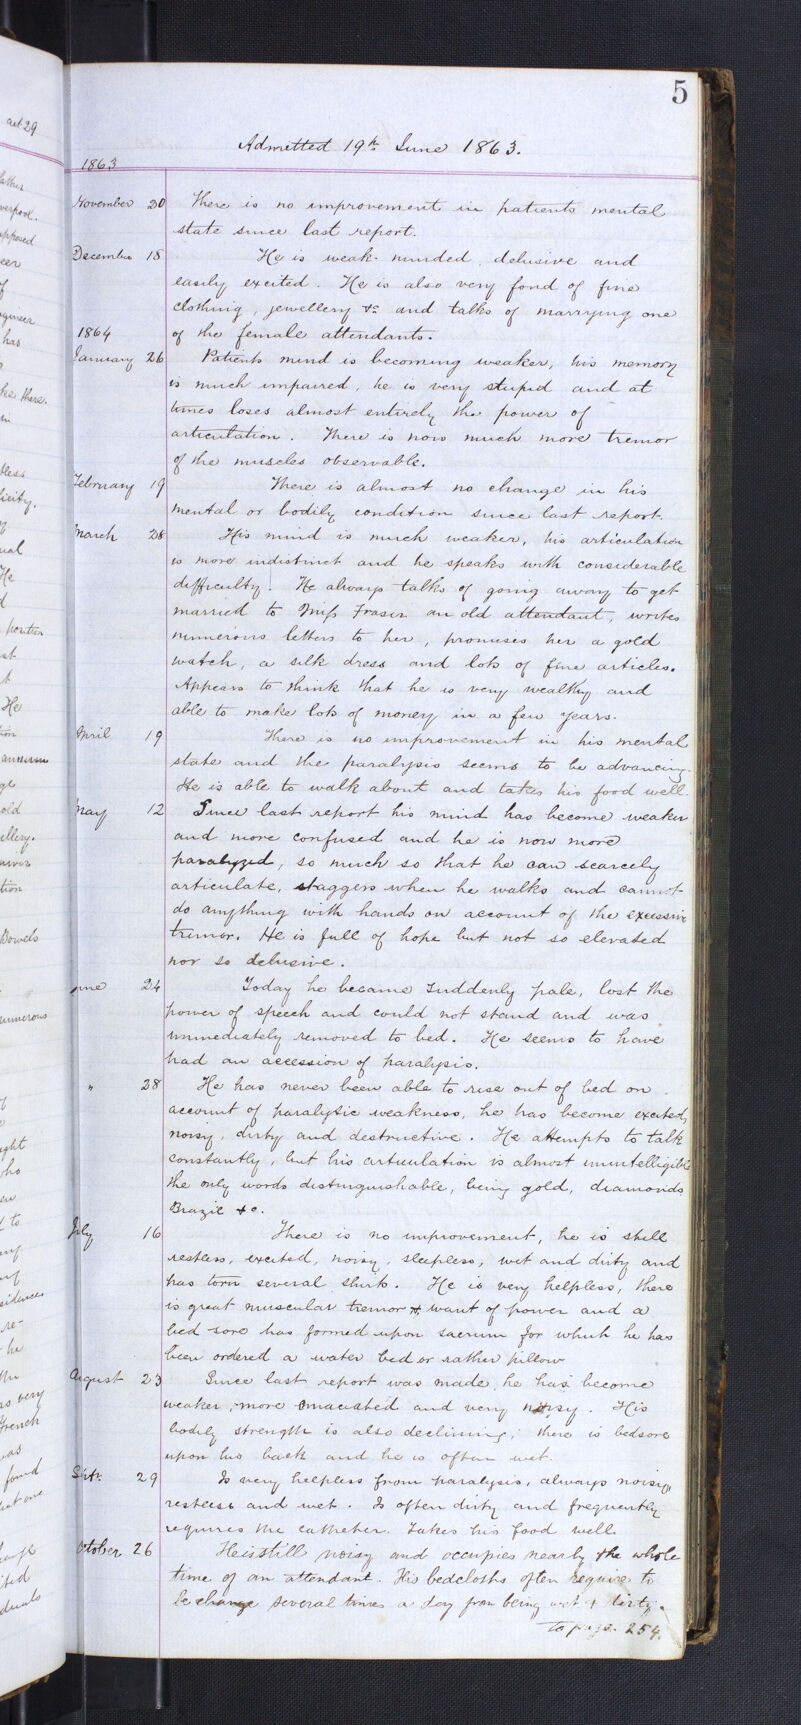 5
Admitted 19th June 1863.
1863
November 20 There is no improvement in patients mental
state since last report.
December 18 He is weak-minded, delusive and
easily excited. He is also very fond of fine
clothing, jewellery &c and talks of marrying one
1864 of the female attendants.
January 26 Patients mind is becoming weaker, his memory
is much impaired, he is very stupid and at
times loses almost entirely the power of
articulation. There is now much more tremor
of the muscles observable.
February 19 There is almost no change in his
mental or bodily condition since last report.
March 28 His mind is much weaker, his articulation
is more indistinct and he speaks with considerable
difficulty. He always talks of going away to get
married to Miss Fraser an old attendant, writes
numerous letters to her, promises her a gold
watch, a silk dress and lots of fine articles.
Appears to think that he is very wealthy and
able to make lots of money in a few years.
April 19 There is no improvement in his mental
state and the paralysis seems to be advancing.
He is able to walk about and takes his food well.
May 12 Since last report his mind has become weaker
and more confused and he is now more
paralyzed, so much so that he can scarcely
articulate, staggers when he walks and cannot
do anything with hands on account of the excessive
tremor. He is full of hope but not so elevated
nor so delusive.
June 24 Today he became suddenly pale, lost the
power of speech and could not stand and was
immediately removed to bed. He seems to have
had an accession of paralysis.
" 28 He has never been able to rise out of bed on
account of paralytic weakness, he has become excited,
noisy, dirty and destructive. He attempts to talk
constantly, but his articulation is almost unintelligible
the only words distinguishable, being gold, diamonds
Brazil &c.
July 16 There is no improvement, he is still
restless, excited, noisy, sleepless, wet and dirty and
has torn several shirts. He is very helpless, there
is great muscular tremor & want of power and a
bed sore has formed upon sacrum for which he has
been ordered a water bed or rather pillow
August 23 Since last report was made, he has become
weaker, more emaciated and very noisy. His
bodily strength is also declining; there is bedsore
upon his back and he is often wet.
Sept. 29 Is very helpless from paralysis, always noisy,
restless and wet. Is often dirty and frequently
requires the catheter. Takes his food well.
October 26 He is still noisy and occupies nearly the whole
time of an attendant. His bedcloths often require to
be change several times a day from being wet & dirty.
to page. 254.